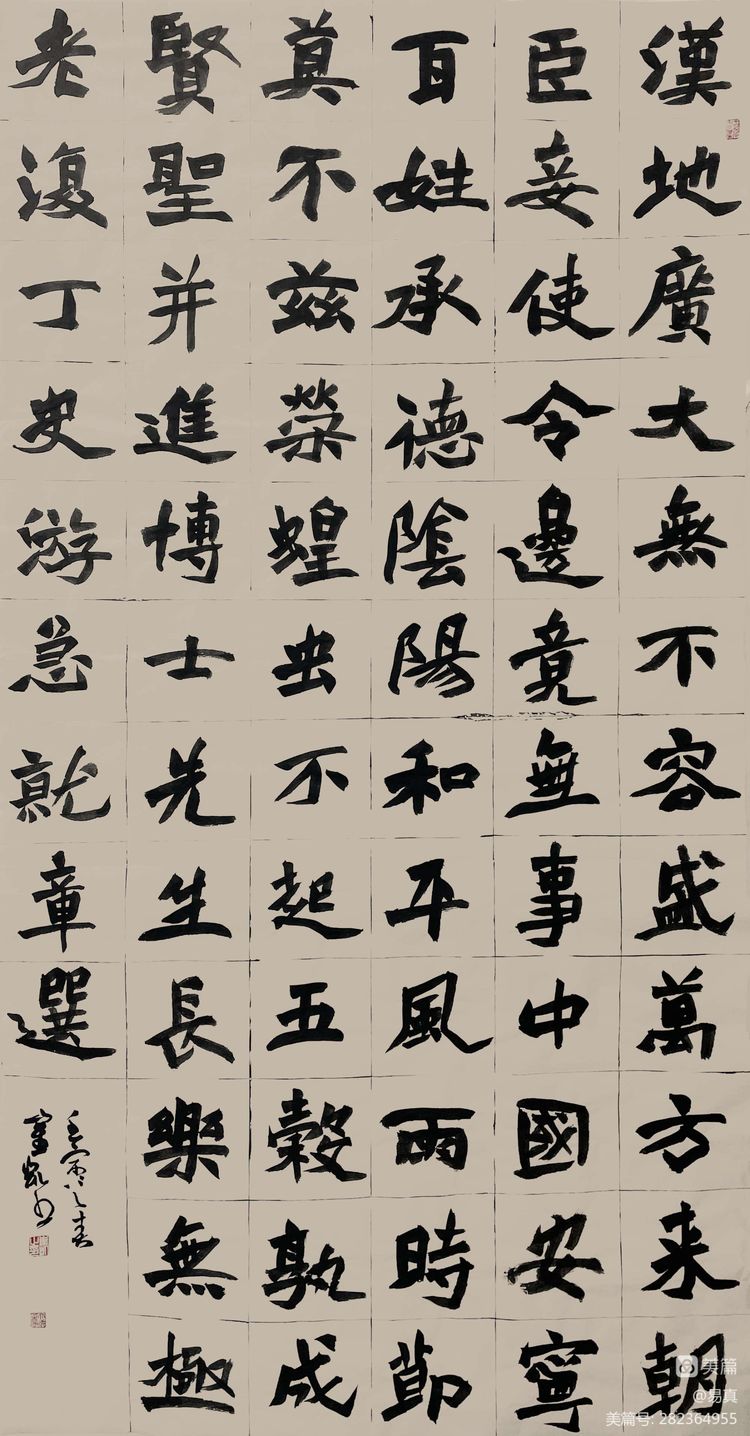 漢地廣大無不容盛萬方来朝
臣妾使令邊竟無事中國安寧
百姓承德陰陽和平風雨時節
莫不茲榮蝗虫不起五穀孰成
賢聖并進博士先生長樂無極
老復丁史游急就章選
美篇
@易真
美篇号: 282364955